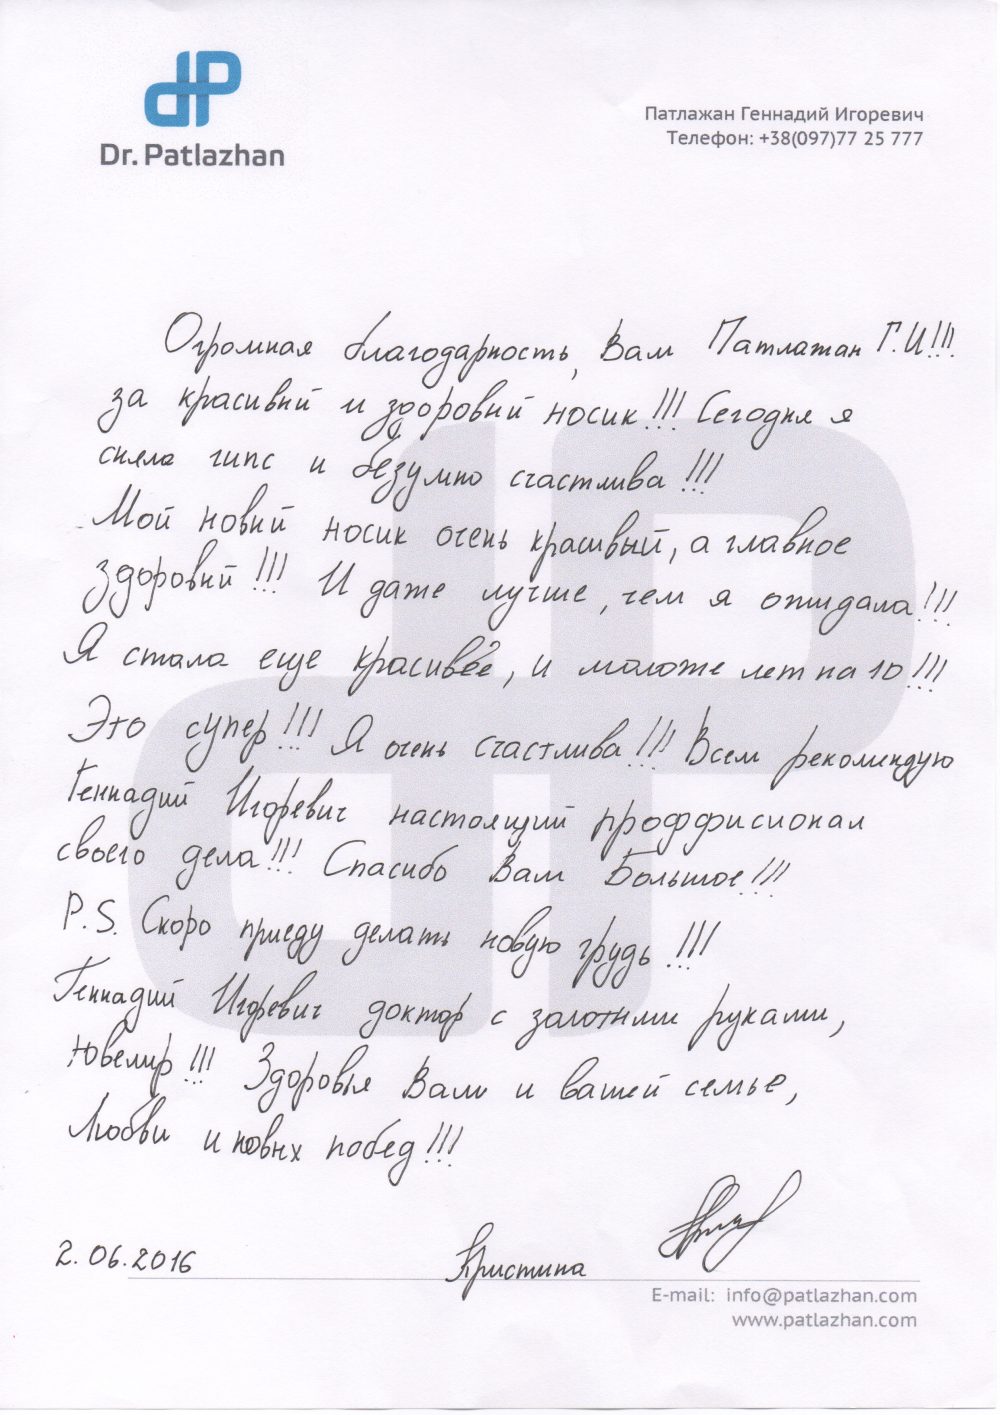 Dr. Patlazhan
Патлажан Геннадий Игоревич
Телефон: +38(097)77 25 777
Огромная благодарность, Вам Патлажан Г.И!!!
за красивий и здоровий носик!!! Сегодня я
сняла гипс и безумно счастлива!!!
Мой новий носик очень красивый, а главное
здоровий!!! И даже лучше, чем я ожидала!!!
Я стала еще красивее, и моложе лет на 10!!!
Это супер!!! Я очень счастлива!!! Всем рекомендую
Геннадий Игоревич настоящий проффисионал
своего дела!!! Спасибо Вам Большое!!!
P.S. Скоро приеду делать новую грудь!!!
Геннадий Игоревич доктор с золотыми руками,
Ювелир!!! Здоровья Вам и вашей семье,
Любви и новых побед!!!
2.06.2016
Кристина
E-mail: info@patlazhan.com
www.patlazhan.com